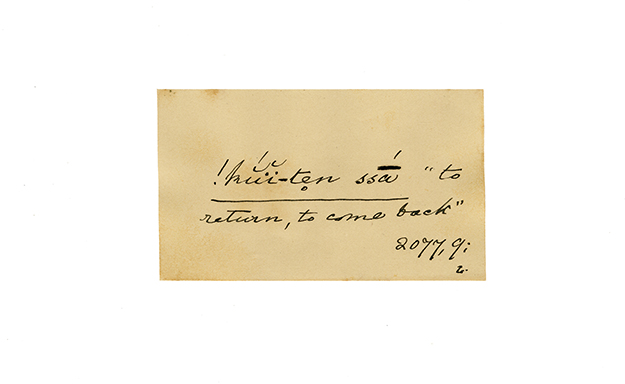 !kŭ́ĭ-tẹn ssā́ "to
return, to come back"
2077, 9;
L.